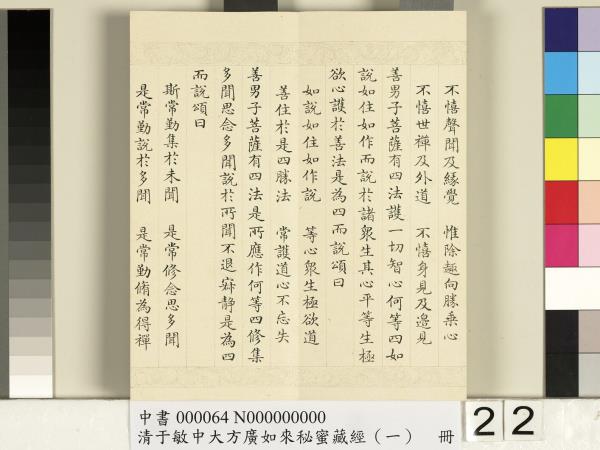 不悕聲聞及緣覺　惟除趣向勝乘心
不悕世禪及外道　不悕身見及邊見
善男子菩薩有四法護一切智心何等四如
說如住如作而說於諸衆生其心平等生極
欲心護於善法是為四而說頌曰
如說如住如作說　等心衆生極欲道
善住於是四勝法　常護道心不忘失
善男子菩薩有四法是所應作何等四修集
多聞思念多聞說於所聞不退寂静是為四
而說頌曰
斯常勤集於未聞　是常修念思多聞
是常勤說於多聞　是常勤脩為得禪
中書 000064 N000000000
清于敏中大方廣如來秘蜜藏經（一）　冊
22